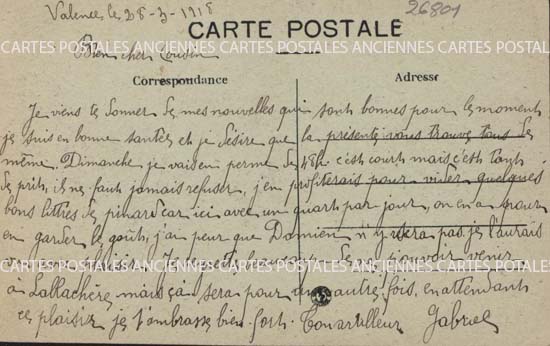 Valence le 28-3-1918
26801
CARTE POSTALE
CARTES POSTALES ANCIENNES CARTES POSTALES ANCIENNES CARTES POSTALES
Bien cher Cousin
Correspondance
Adresse
Je viens te donner de mes nouvelles qui sont bonnes pour le moment
je suis en bonne santée et je désire que la présente vous trouve tous de
même. Dimanche je vais en perme de 48h c'est court mais c'est tant
de pris, il ne faut jamais refuser, j'en profiterais pour vider quelques
bons littres de pinard car ici avec un quart par jour, on en a pour
en garder le goût, j'ai peur que Damien n'y sera pas je l'aurais
vu avec plaisir. Je
pouvoir venir
à Lablachère mais ça sera pour une autre fois, en attendant
ce plaisir je t'embrasse bien fort. Ton artilleur Gabriel